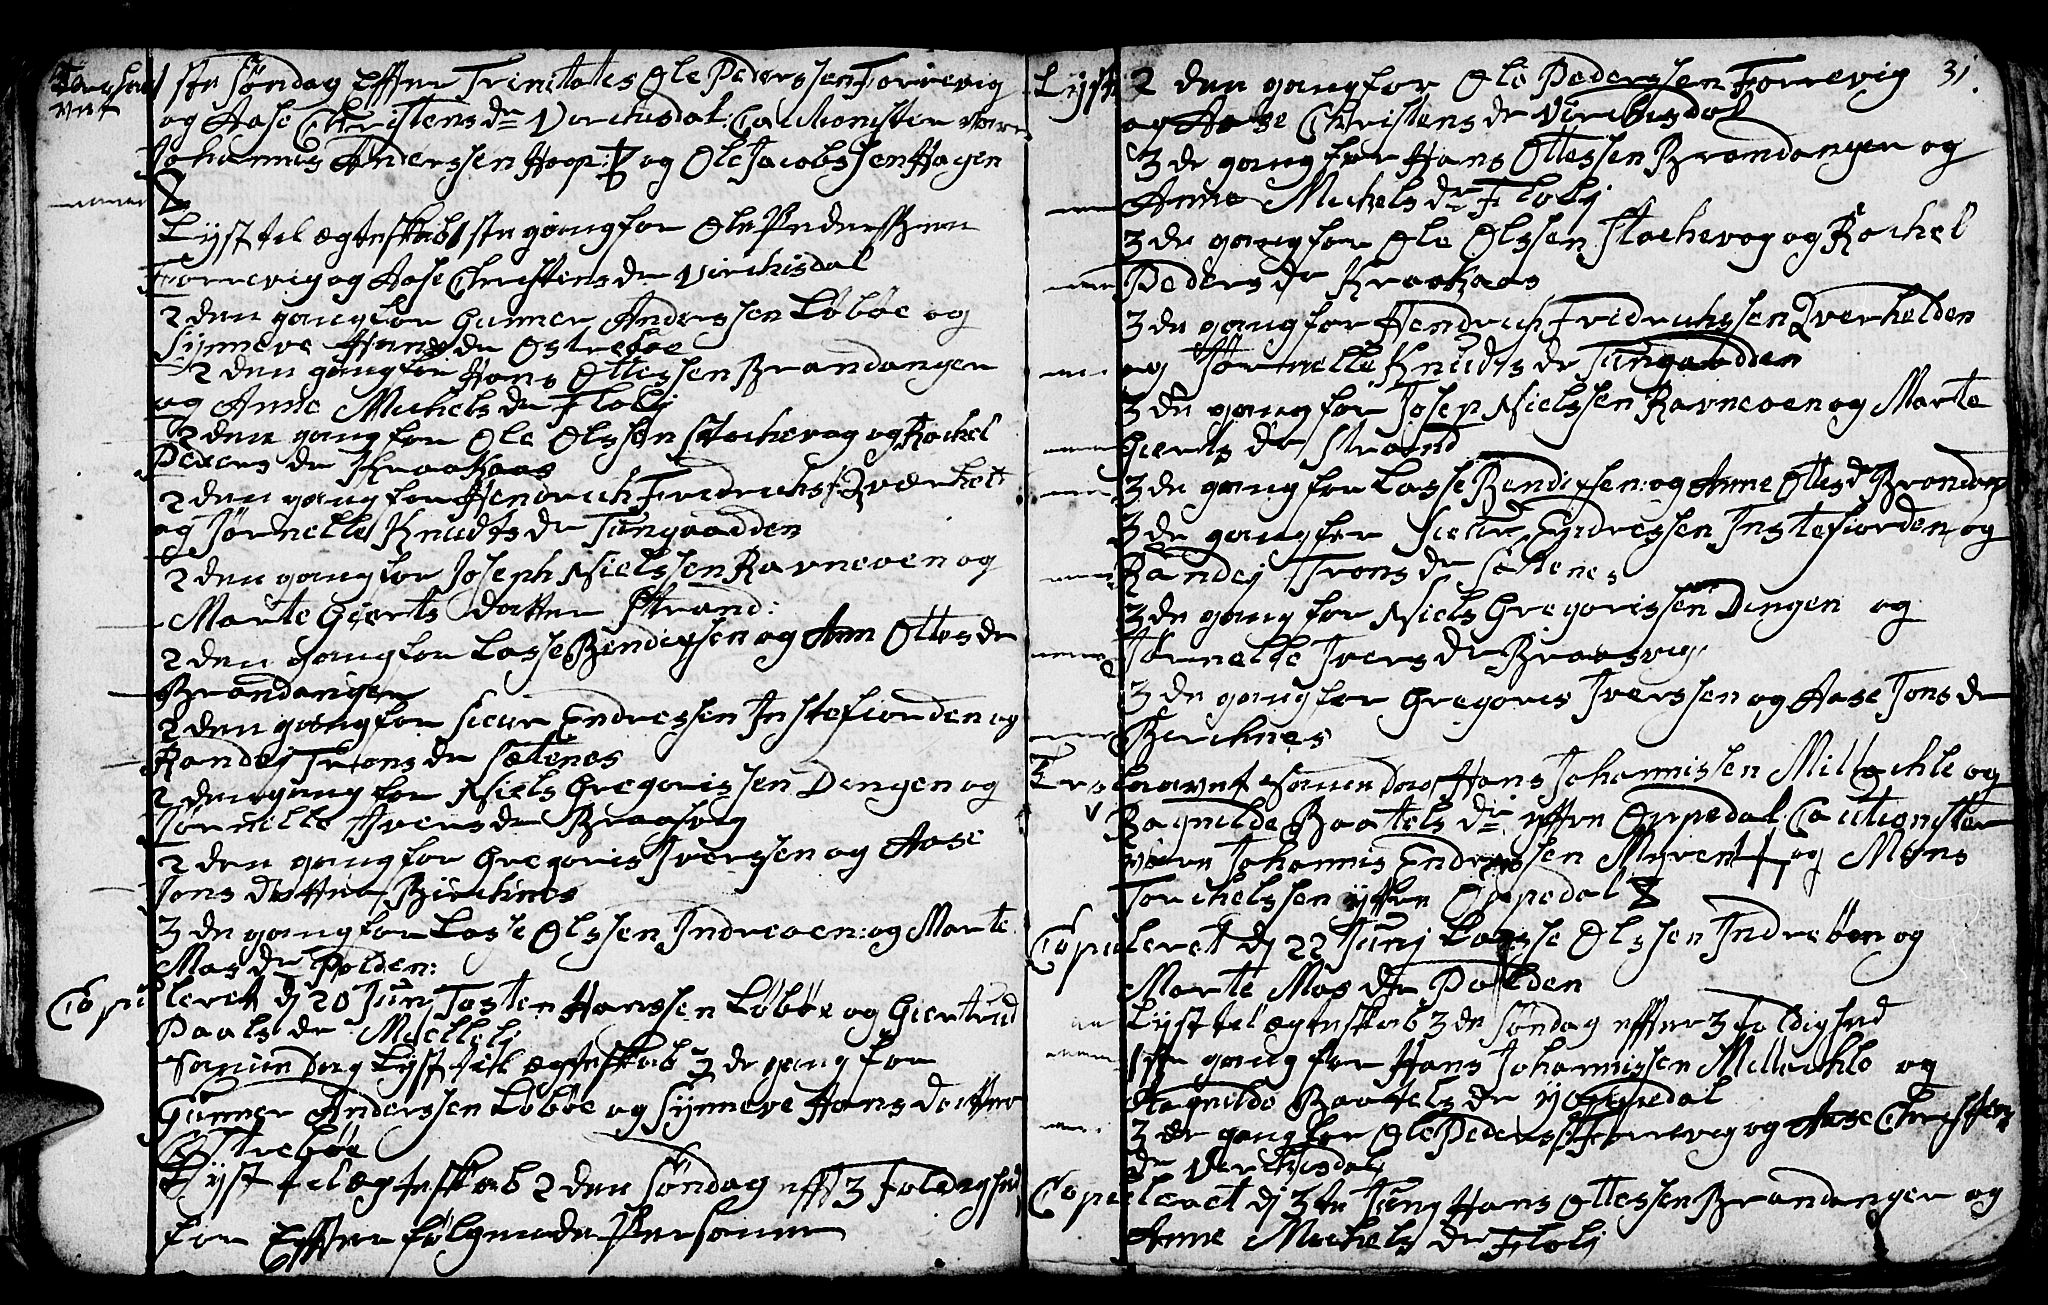 1ste Søndag Effter Trinitatis Ole Pederssen Forrevig
og Aase Christens dr Virchisdal: Cautionister vare
Johannis Anderssen Hoop: og Ole Jacobssen Hagen
Lyst tel ægteskab 1ste gang for Ole Pederssen
Forrevig og Aase Christens dr Virchisdal
2 den gang for Gunner Anderssen Løbøe og
Synneve Hans dr Østrebøe
2 den gang for Hans Ottessen Brandanger
og Anne Michels dr Flolj
2 den gang for Ole Olssen Stochevog og Rachel
Peders dr Kraakaas
2 den gang for Hendrich Fridrichs: Qverhel
og Jørnelle Knudts dr Tungaadden
2 den gang for Joseph Nielssen Ravneøen og
Marte Gierts datter Strand:
2 den gang for Lasse Bendixsen og Ann Ottes dr
Brandanger
2 den gang for Sieur Endressen Instefiorden og
Randej Trons dr Sætenes
2 den gang for Niels Gregorissen Dingen og
Jørnille Ivers dr Braasvig
2 den gang for Gregoris Iverssen og Aase
Jons datter Birchnes
3 de gang for Lasse Olssen Indreøen: og Marte
Mas dr Polden:
Copuleret dj 20 Junj Tosten Hanssen Løbøe og Giertrud
Paals dr Mielelj
Samme Dag Lyst till ægteskab 3 de gang for
Gunner Anderssen Løbøe og Synneve Hans datter
Østrebøe
Lyst tel ægteskab 2 den Søndag eff 3 foldighed
for Effterfølgende Personer
31.
Lyst 2 den gang for Ole Pederssen Forrevig
og Aase Christens dr Virchisdal
3 de gang for Hans Ottessen Brandanger og
Anne Michels dr Flolj
3 de gang for Ole Olssen Stochevog og Rachel
Peders dr Kraakaas
3 de gang for Hendrich Fridrichssen Qverhelden
og Jørnelle Knudts dr Tungaadden
3 de gang for Josep Nielssen Ravneøen og Marte
Gierts dr Strand
3 de gang for Lasse Bendixsen: og Anne Ottesd Brandan
3 de gang for Sieur Endressen Instefiorden og
Randej Trons dr Sætenes
3 de gang for Niels Gregorissen Dingen og
Jørnelle Ivers dr Braasvig
3 de gang for Gregoris Iverssen og Aase Jons dr
Birchnes
samme Dag Hans Johannissen Millechle og
Ragnilde Baatels dr yttre Oppedal. Cautionister
vare Johannis Endressen Myren og Mons
Torchelssen yttre Oppedal
Copuleret dj 22 Junj Lasse Olssen Indrebøen og
Marte Mas dr Polden
Lyst tel ægteskab 3 de Søndag effter 3 foldighed
1ste gang for Hans Johannissen Millechle og
Ragnilde Baatels dr y Oppedal
3 de gang for Ole Peders: Forrevig og Aase Christens
dr Virchisdal
Copuleret dj 3 te Hans Ottessen Brandanger og
Anne Michels dr Flolj